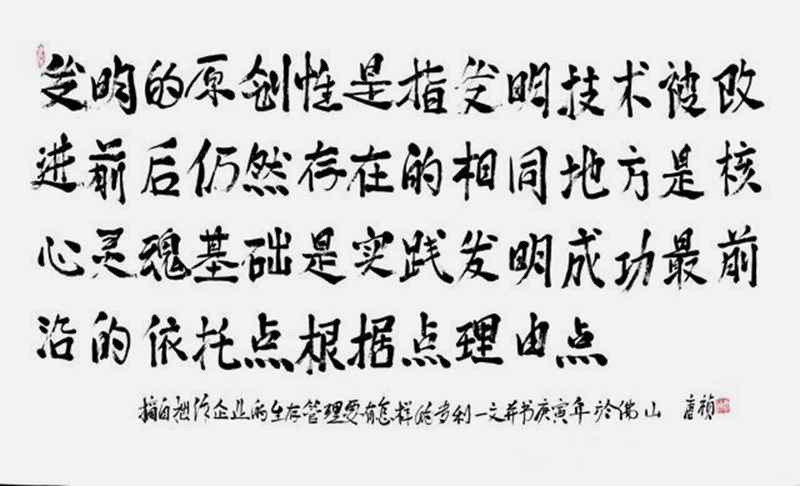 发明的原创性是指发明技术被改
进前后仍然存在的相同地方是核
心灵魂基础是实践发明成功最前
沿的依托点根据点理由点
摘自想作企业的生存管理要有怎样的专利一文并书庚寅年於佛山 唐祯